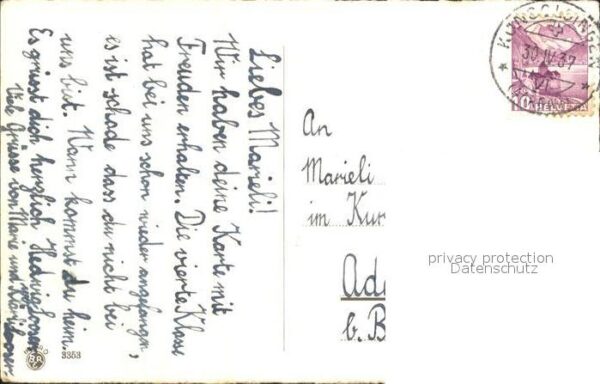 Liebes Marieli!
Wir haben deine Karte mit
Freuden erhalten. Die vierte Klasse
hat bei uns schon wieder angefangen,
es ist schade dass du nicht bei
uns bist. Wann kommst du heim.
Es grüsst dich herzlich Hedwig
Viele Grüsse von Marie und
3353
30.IV.37
10
HELVETIA
An
Marieli
im Kur
Ad
b. B
privacy protection
Datenschutz